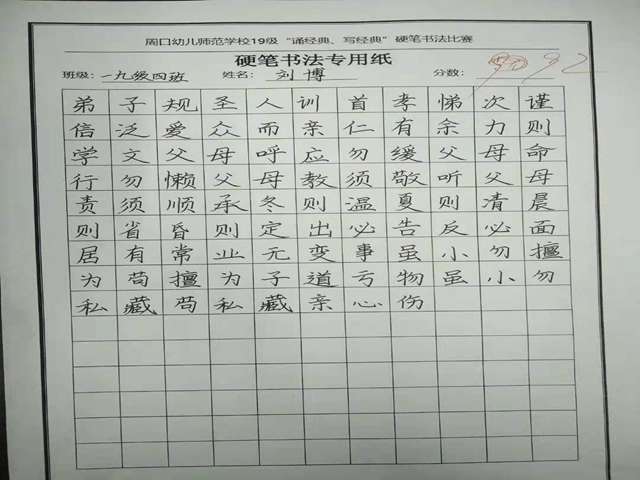 周口幼儿师范学校19级“诵经典、写经典”硬笔书法比赛
硬笔书法专用纸
班级:一九级四班 姓名:刘博 分数: 92
弟子规圣人训首孝悌次谨
信泛爱众而亲仁有余力则
学文父母呼应勿缓父母命
行勿懒父母教须敬听父母
责须顺承冬则温夏则清晨
则省昏则定出必告反必面
居有常业无变事虽小勿擅
为苟擅为子道亏物虽小勿
私藏苟私藏亲心伤